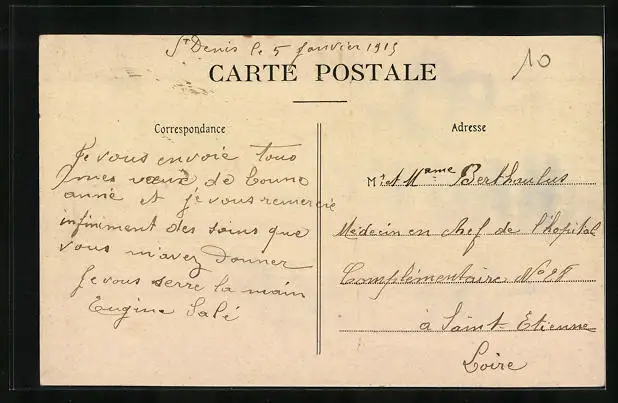 St Denis le 5 Janvier 1915
10
CARTE POSTALE
Correspondance
Je vous envoie tous
mes vœux de bonne
anné et je vous remercie
infiniment des soins que
vous m'avez Donner
Je vous serre la main
Eugène Salé
Adresse
Mr et Mame Berthaulus
Médecin en chef de l'hopital
Complémentaire No
à Saint-Etienne
Loire